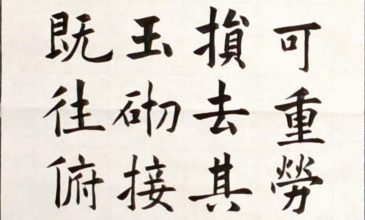 可重勞
損去其
玉砌接
既往俯